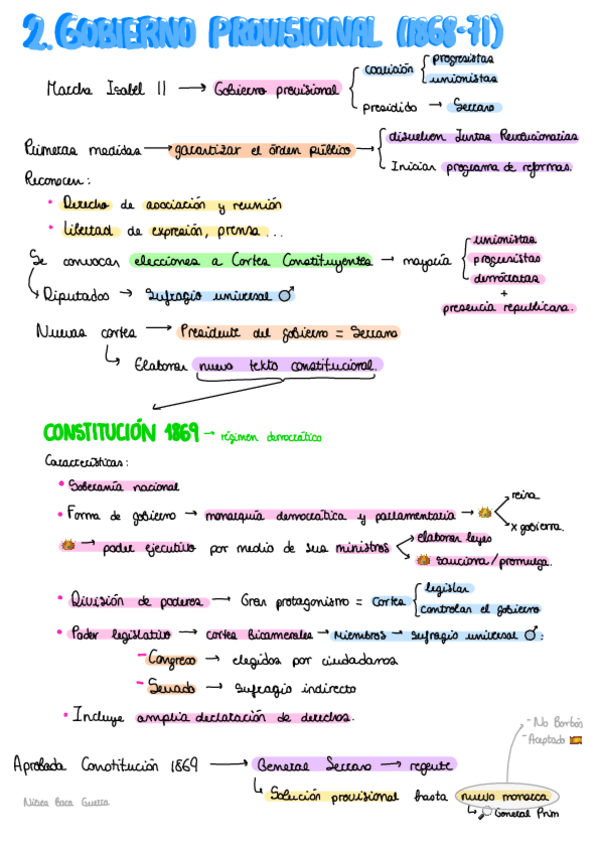 2. GOBIERNO PROVISIONAL (1868-71)
Marcha Isabel II → Gobierno provisional
coalición
progresistas
unionistas
presidido → Serrano
Primeras medidas → garantizar el órden público →
disuelven Juntas Revolucionarias
Iniciar programa de reformas.
Reconocen:
• Derecho de asociación y reunión
• Libertad de expresión, prensa...
Se convocan elecciones a Cortes Constituyentes → mayoría
unionistas
progresistas
demócratas
+
presencia republicana.
Diputados → Sufragio universal ♂
Nuevas cortes → Presidente del gobierno = Serrano
Elaborar nuevo texto constitucional.
CONSTITUCIÓN 1869 → régimen democrático
Características:
• Soberanía nacional
• Forma de gobierno → monarquía democrática y parlamentaria → 👑
reina
x gobierna.
👑 → poder ejecutivo por medio de sus ministros
elaborar leyes
👑 sanciona/promulga.
• División de poderes → Gran protagonismo = Cortes
legislar
controlar el gobierno
• Poder legislativo → cortes bicamerales → Miembros → sufragio universal ♂:
- Congreso → elegidos por ciudadanos
- Senado → sufragio indirecto
• Incluye amplia declaración de derechos.
- No Borbón
- Aceptado 🇪🇸
Aprobada Constitución 1869 → General Serrano → regente
Solución provisional hasta nuevo monarca
🔎 General Prim
Nerea Baca Guerra